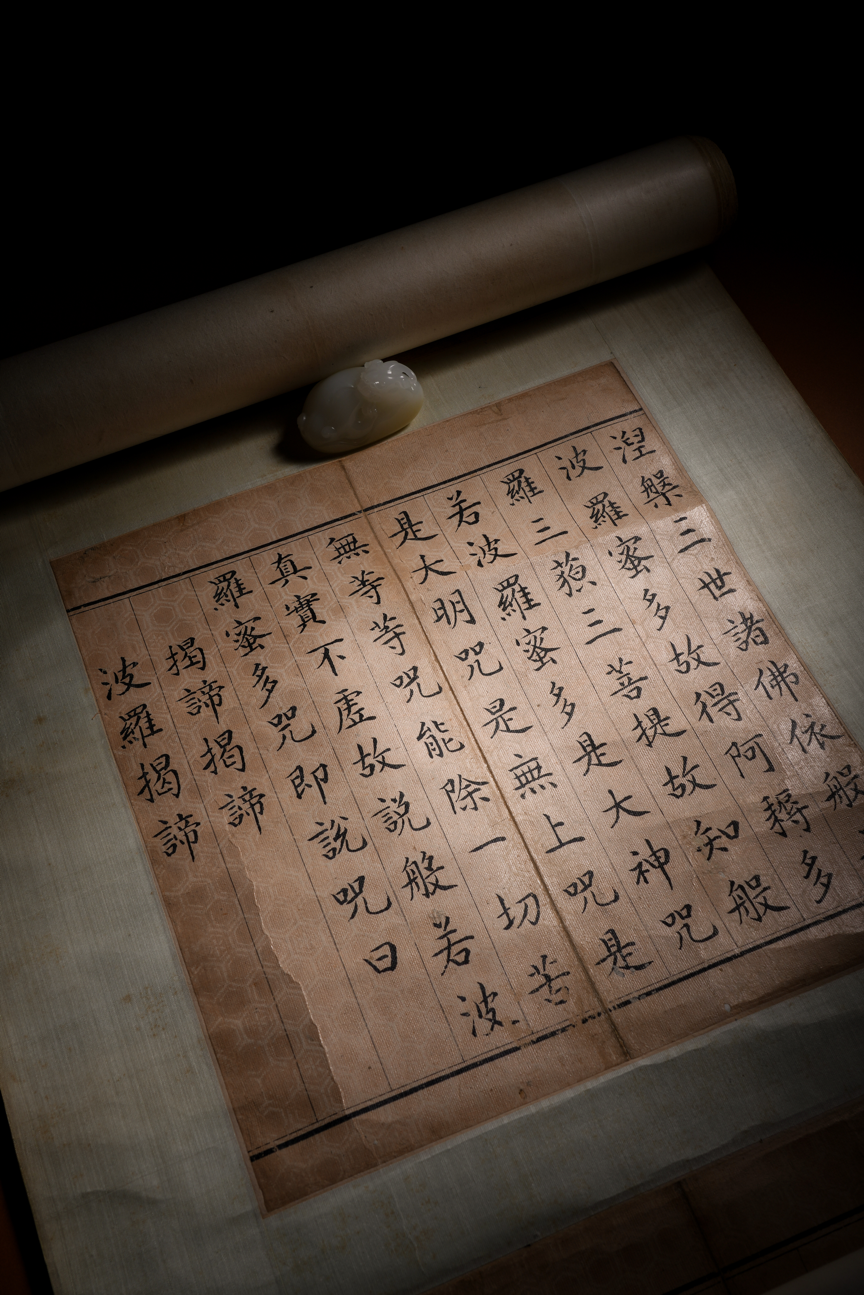 涅槃三世諸佛依般
波羅蜜多故得阿耨多
羅三藐三菩提故知般
若波羅蜜多是大神呪
是大明呪是無上呪是
無等等呪能除一切苦
真實不虛故說般若波
羅蜜多呪即說呪曰
揭諦揭諦
波羅揭諦